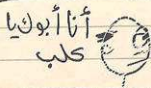 أنا أبوك يا
كلب